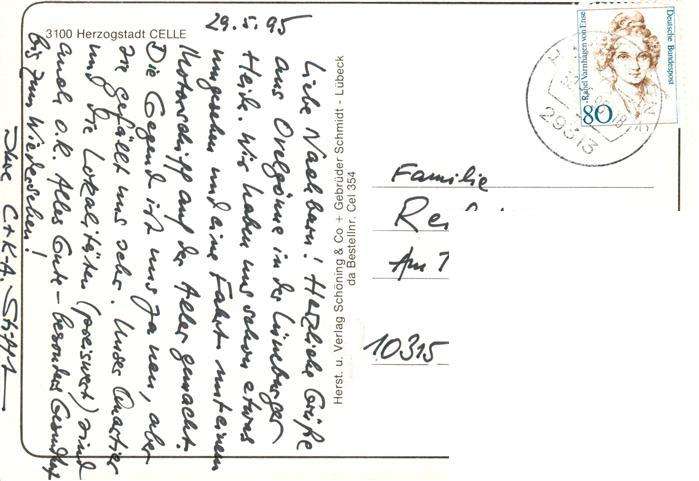 3100 Herzogstadt CELLE
29.5.95
Liebe Nachbarn! Herzliche Grüße
aus Ovelgönne in der Lüneburger
Heide. Wir haben uns schon etwas
umgesehen und eine Fahrt mit einem
Motorschiff auf der Aller gemacht.
Die Gegend ist uns ja neu, aber
sie gefällt uns sehr. Unser Quartier
und die Lokalitäten (preiswert) sind
auch o.k. Alles Gute - besonders Gesundheit
bis zum Wiedersehen!
Ihre C+K-A.
Herst. u. Verlag Schöning & Co + Gebrüder Schmidt - Lübeck
da Bestellnr. Cel 354
Deutsche Bundespost
Rahel Varnhagen von Ense
80
29313
Familie
Am
10315